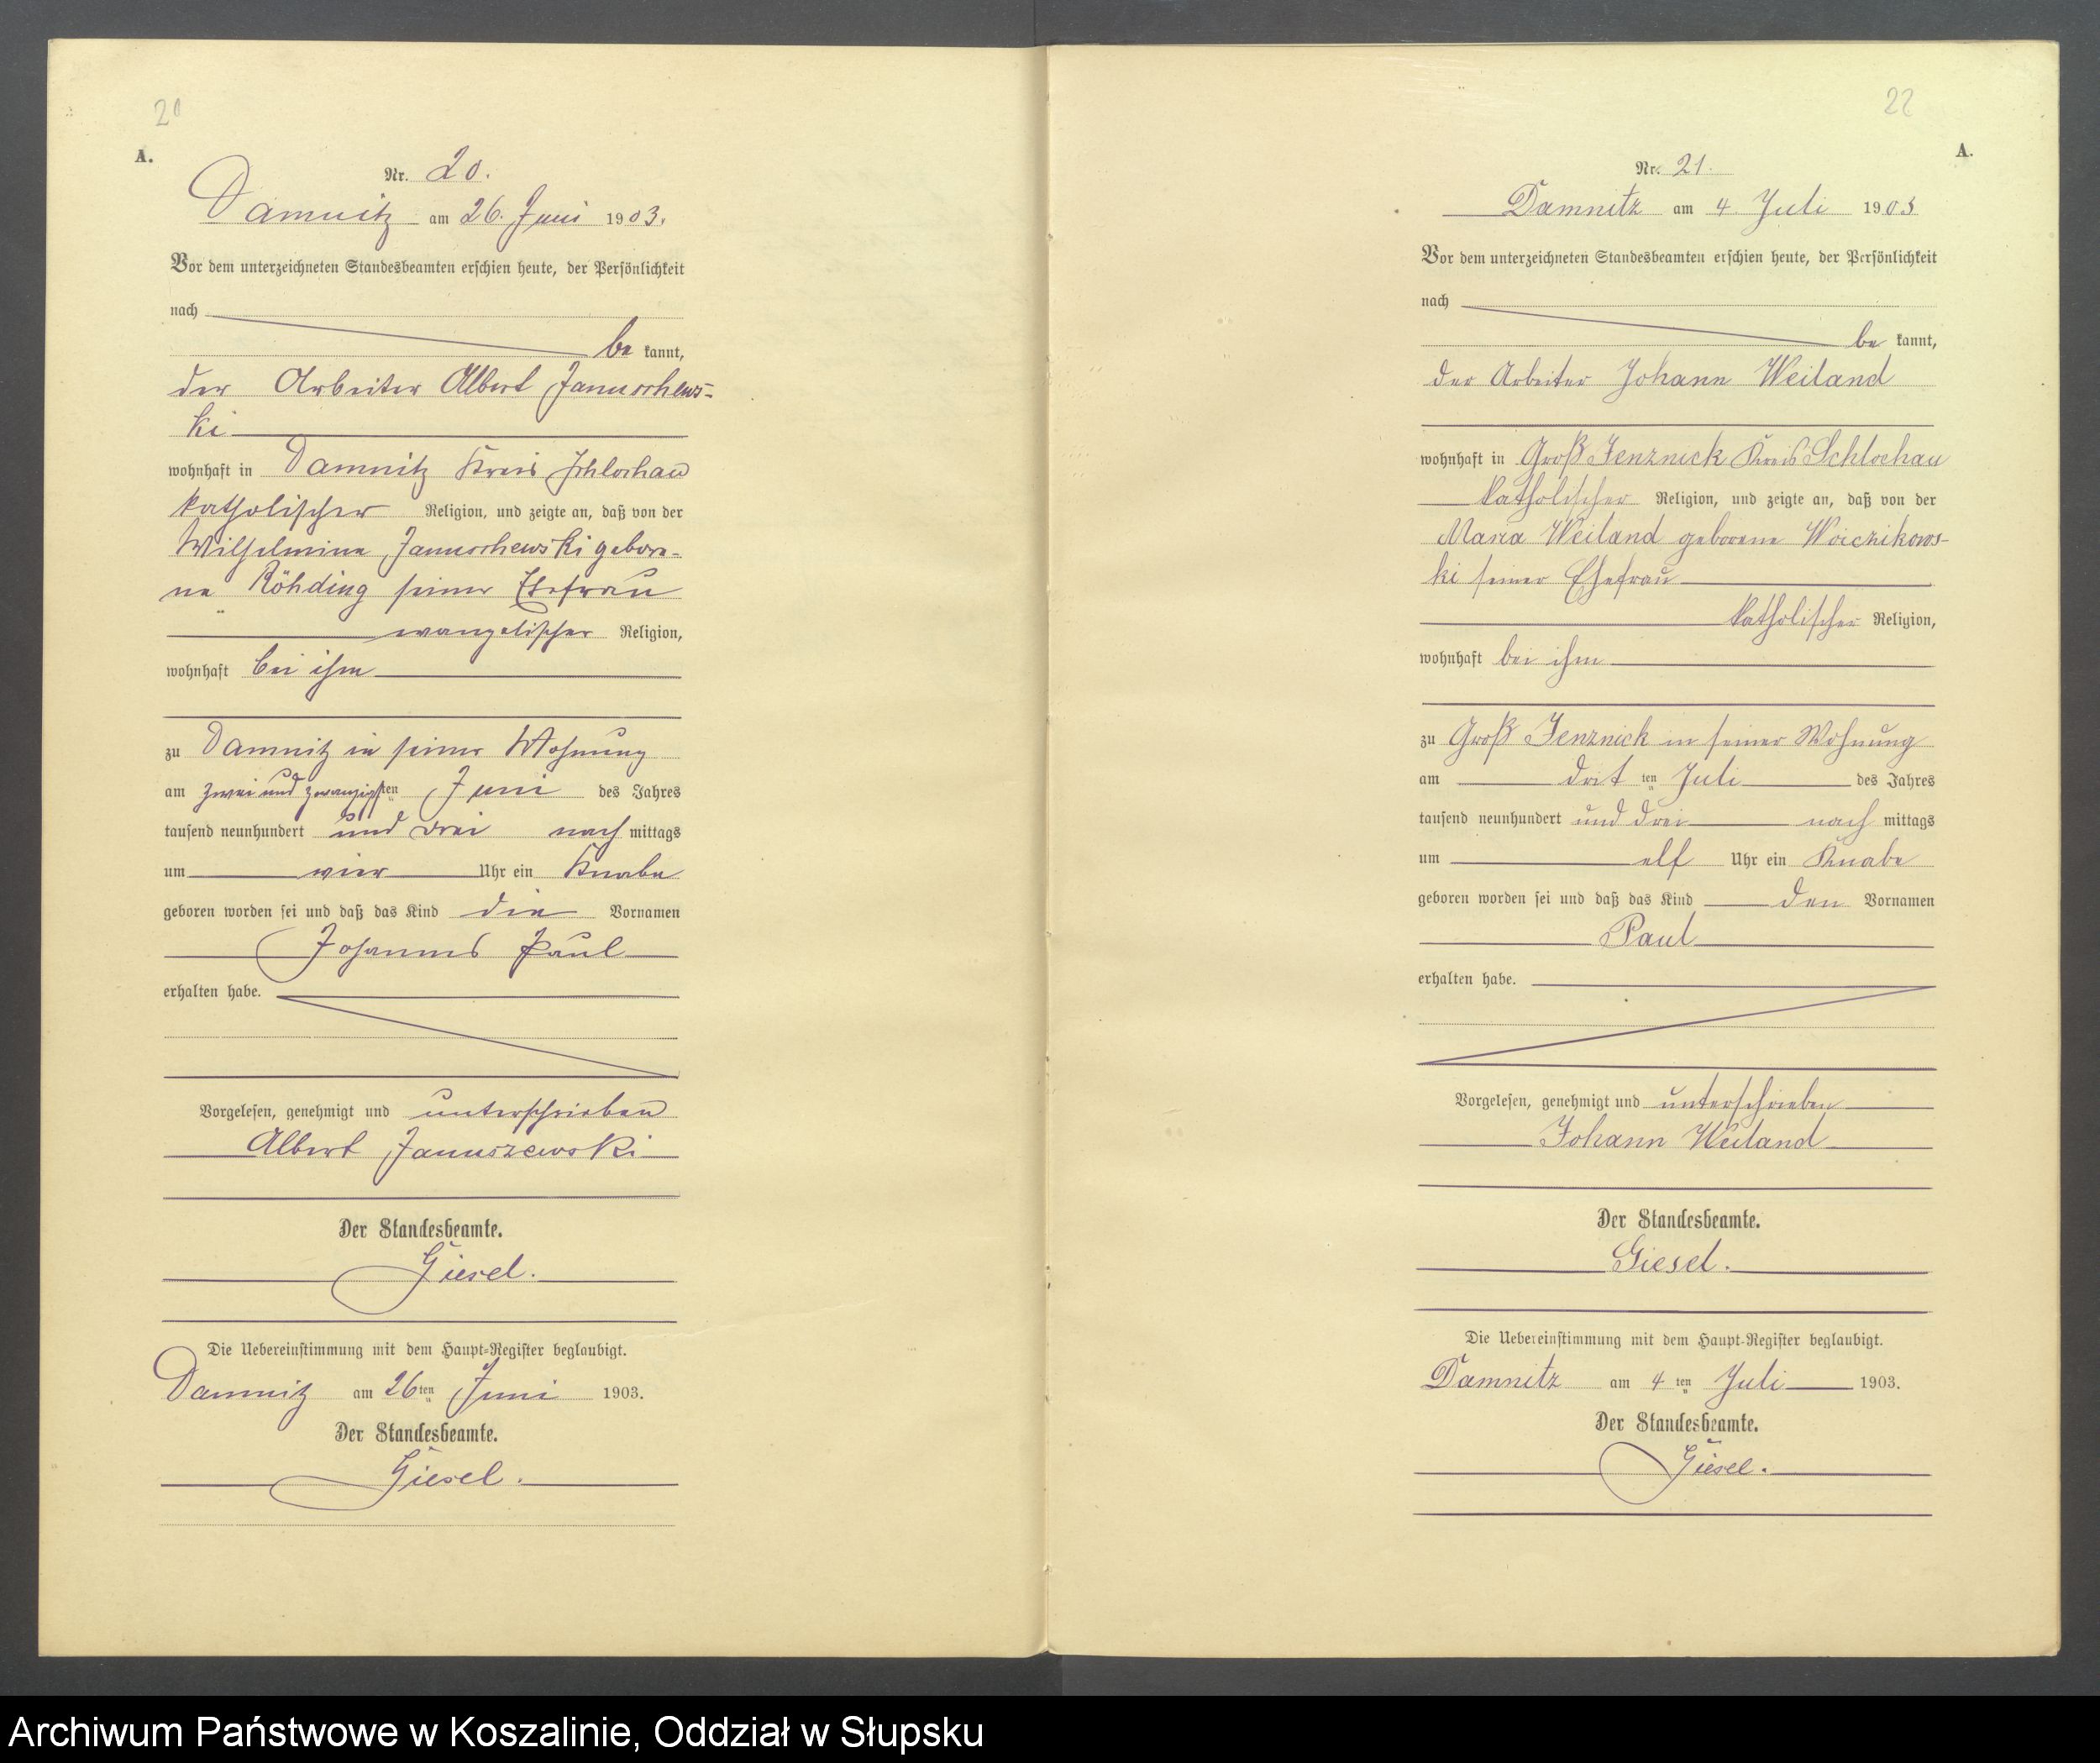 20
A.
Nr. 20.
Damnitz am 26. Juni 1903.
Vor dem unterzeichneten Standesbeamten erschien heute, der Persönlichkeit
nach
be kannt,
der Arbeiter Albert Januschews-
ki
wohnhaft in Damnitz Kreis Schlochau
katholischer Religion, und zeigte an, daß von der
Wilhelmine Januschewski gebore-
ne Röhding seiner Ehefrau
evangelischer Religion,
wohnhaft bei ihm
zu Damnitz in seiner Wohnung
am zwei und zwanzigsten Juni des Jahres
tausend neunhundert und drei nach mittags
um vier Uhr ein Knabe
geboren worden sei und daß das Kind die Vornamen
Johannes Paul
erhalten habe.
Vorgelesen, genehmigt und unterschrieben
Albert Januszewski
Der Standesbeamte.
Giesel.
Die Uebereinstimmung mit dem Haupt-Register beglaubigt.
Damnitz am 26ten Juni 1903.
Der Standesbeamte.
Giesel.
22
A.
Nr. 21.
Damnitz am 4 Juli 1903
Vor dem unterzeichneten Standesbeamten erschien heute, der Persönlichkeit
nach
be kannt,
der Arbeiter Johann Weiland
wohnhaft in Groß Jenznick Kreis Schlochau
katholischer Religion, und zeigte an, daß von der
Maria Weiland geborene Woiczikows-
ki seiner Ehefrau
katholischer Religion,
wohnhaft bei ihm
zu Groß Jenznick in seiner Wohnung
am drit ten Juli des Jahres
tausend neunhundert und drei nach mittags
um elf Uhr ein Knabe
geboren worden sei und daß das Kind den Vornamen
Paul
erhalten habe.
Vorgelesen, genehmigt und unterschrieben
Johann Weiland
Der Standesbeamte.
Giesel.
Die Uebereinstimmung mit dem Haupt-Register beglaubigt.
Damnitz am 4 ten Juli 1903.
Der Standesbeamte.
Giesel.
Archiwum Państwowe w Koszalinie, Oddział w Słupsku